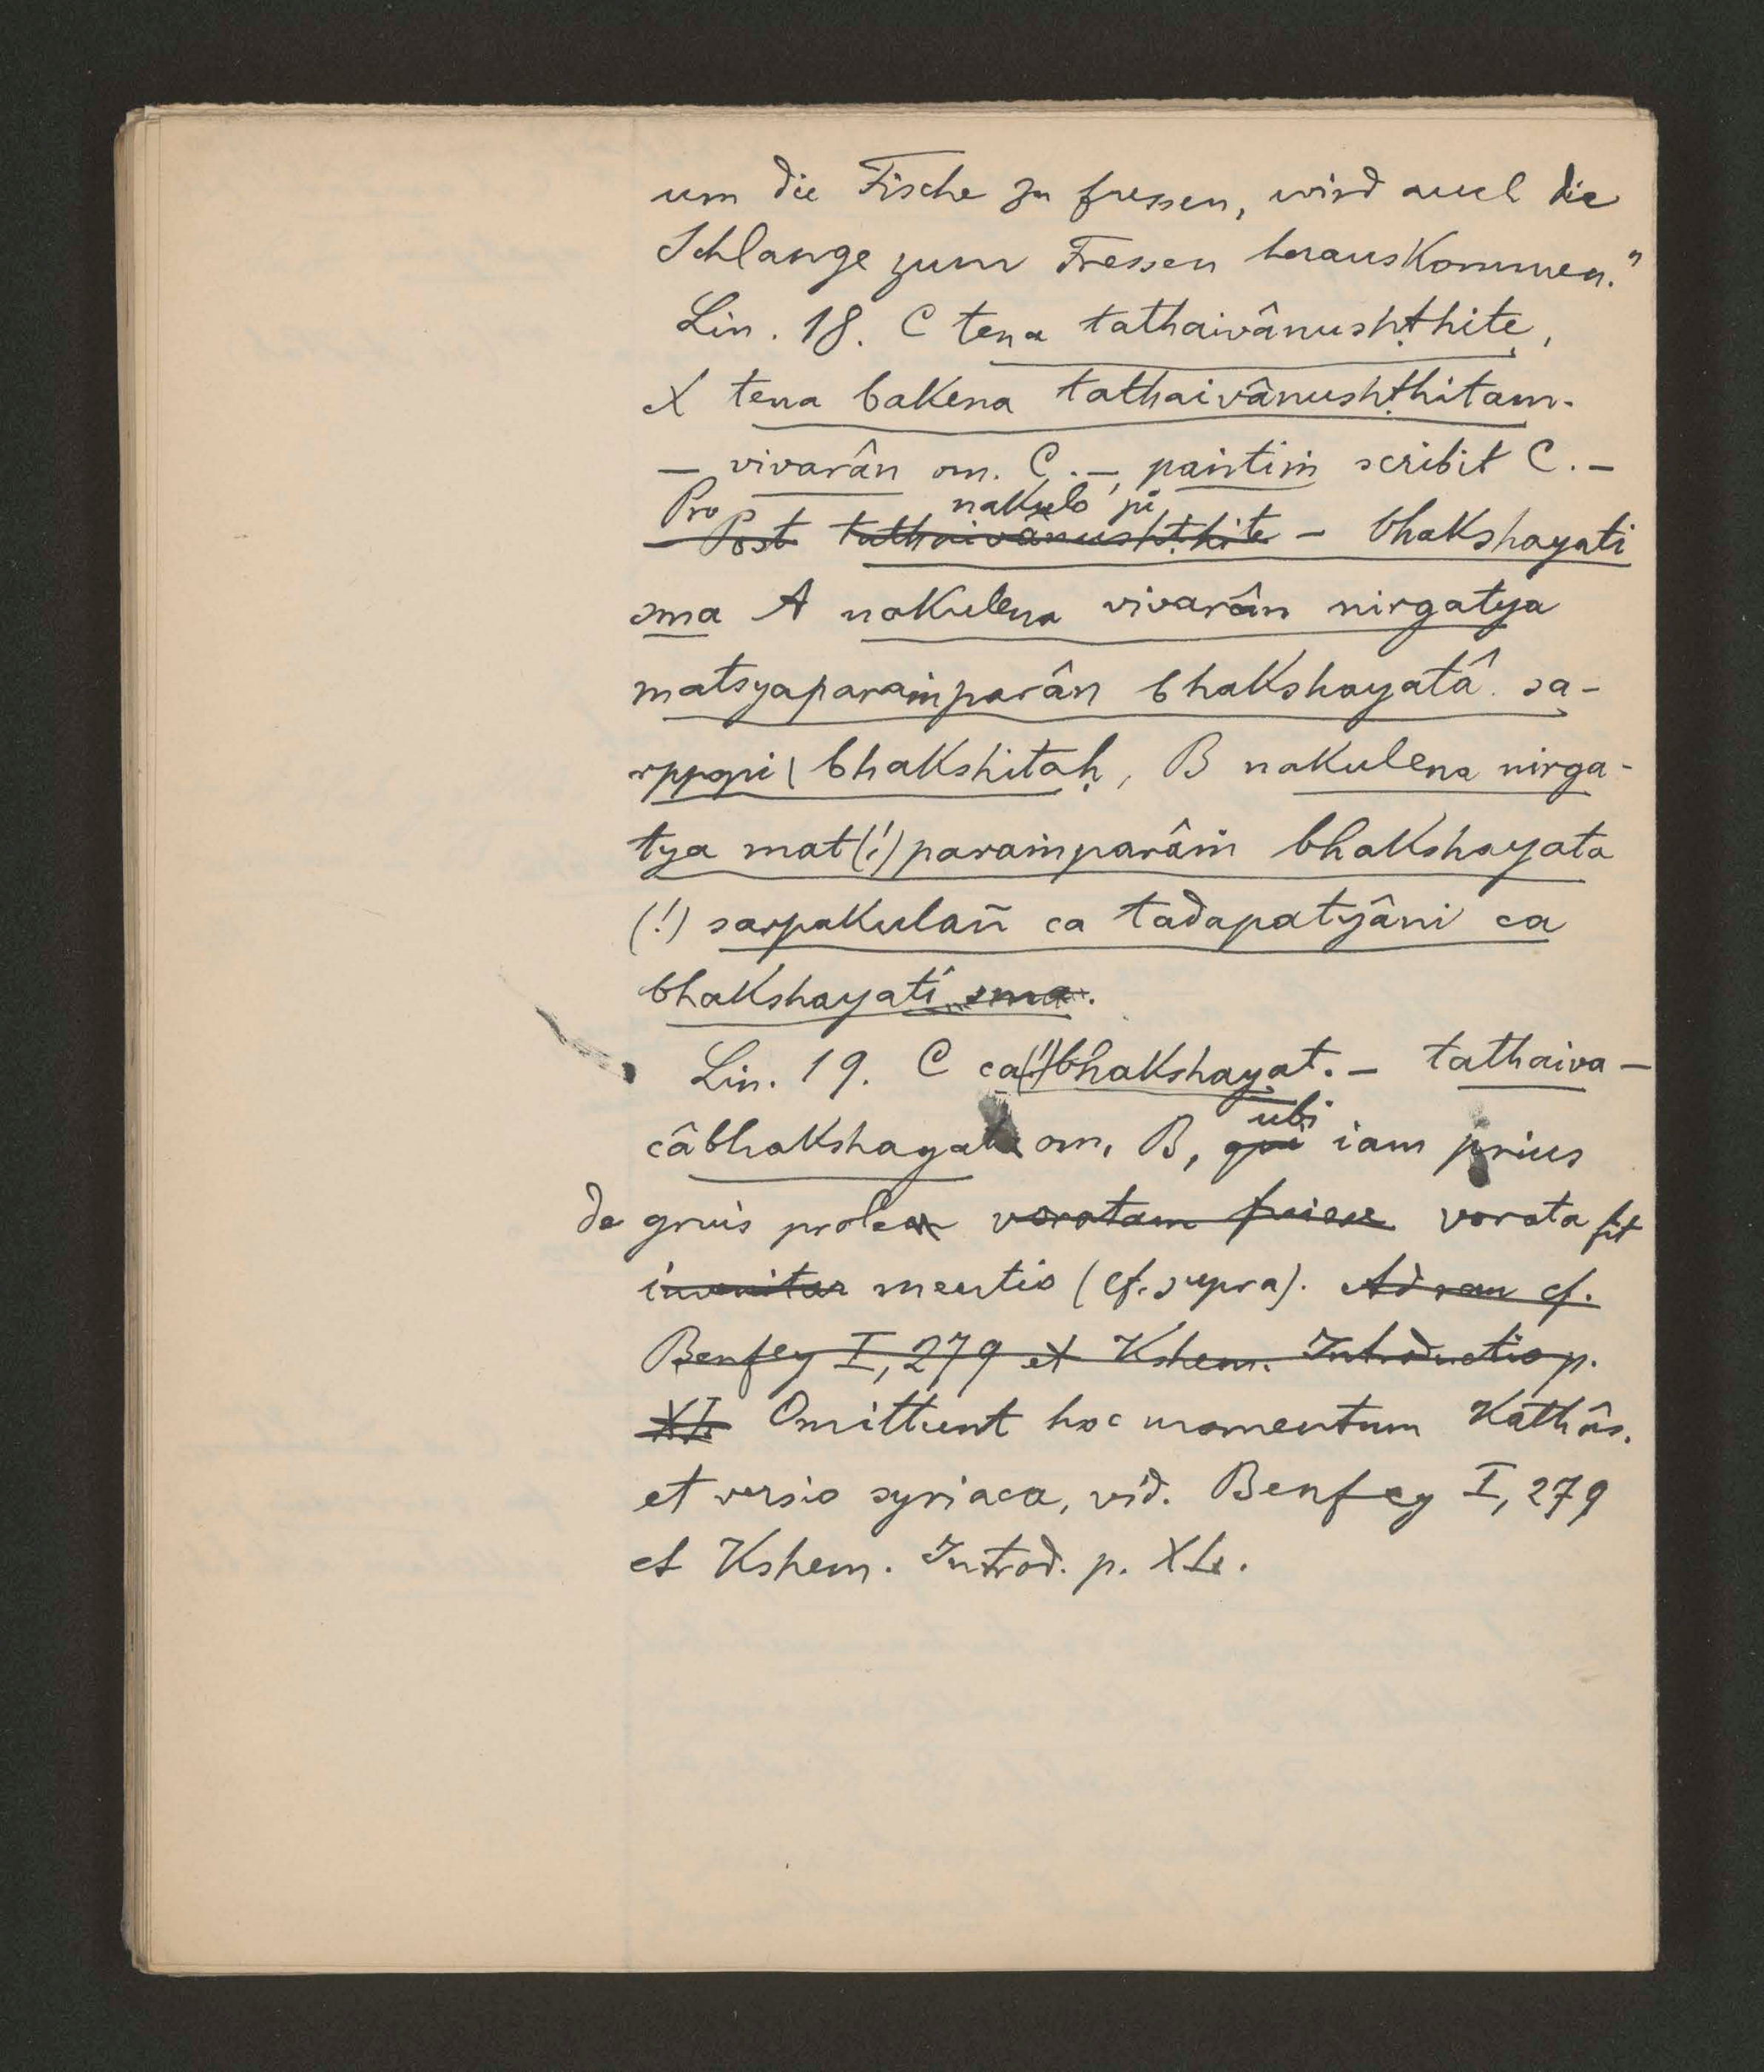 um die Fische zu fressen, wird auch die
Schlange zum Fressen herauskommen."
Lin. 18. C tena tathaivânushṭhite,
X tena bakena tathaivânushṭhitam.
— vivarân om. C. —, paṅtiṁ scribit C. —
Pro nakulo 'pi
Post tathaivânushṭhite — bhakshayati
sma A nakulena vivarân nirgatya
matsyaparaṁparân bhakshayatâ sa-
rppopi bhakshitaḥ, B nakulena nirga-
tya mat(!)paraṁparâṁ bhakshayata
(!) sarpakulañ ca tadapatyâni ca
bhakshayati sma.
Lin. 19. C ca(!)bhakshayat. — tathaiva —
ubi
câbhakshayat om. B, qui iam prius
de gruis prole voratam fuisse vorata fit
invenitur mentio (cf. supra). Ad rem cf.
Benfey I, 279 et Kshem. Introductio p.
XL Omittunt hoc momentum Kathâs.
et versio syriaca, vid. Benfey I, 279
et Kshem. Introd. p. XL.